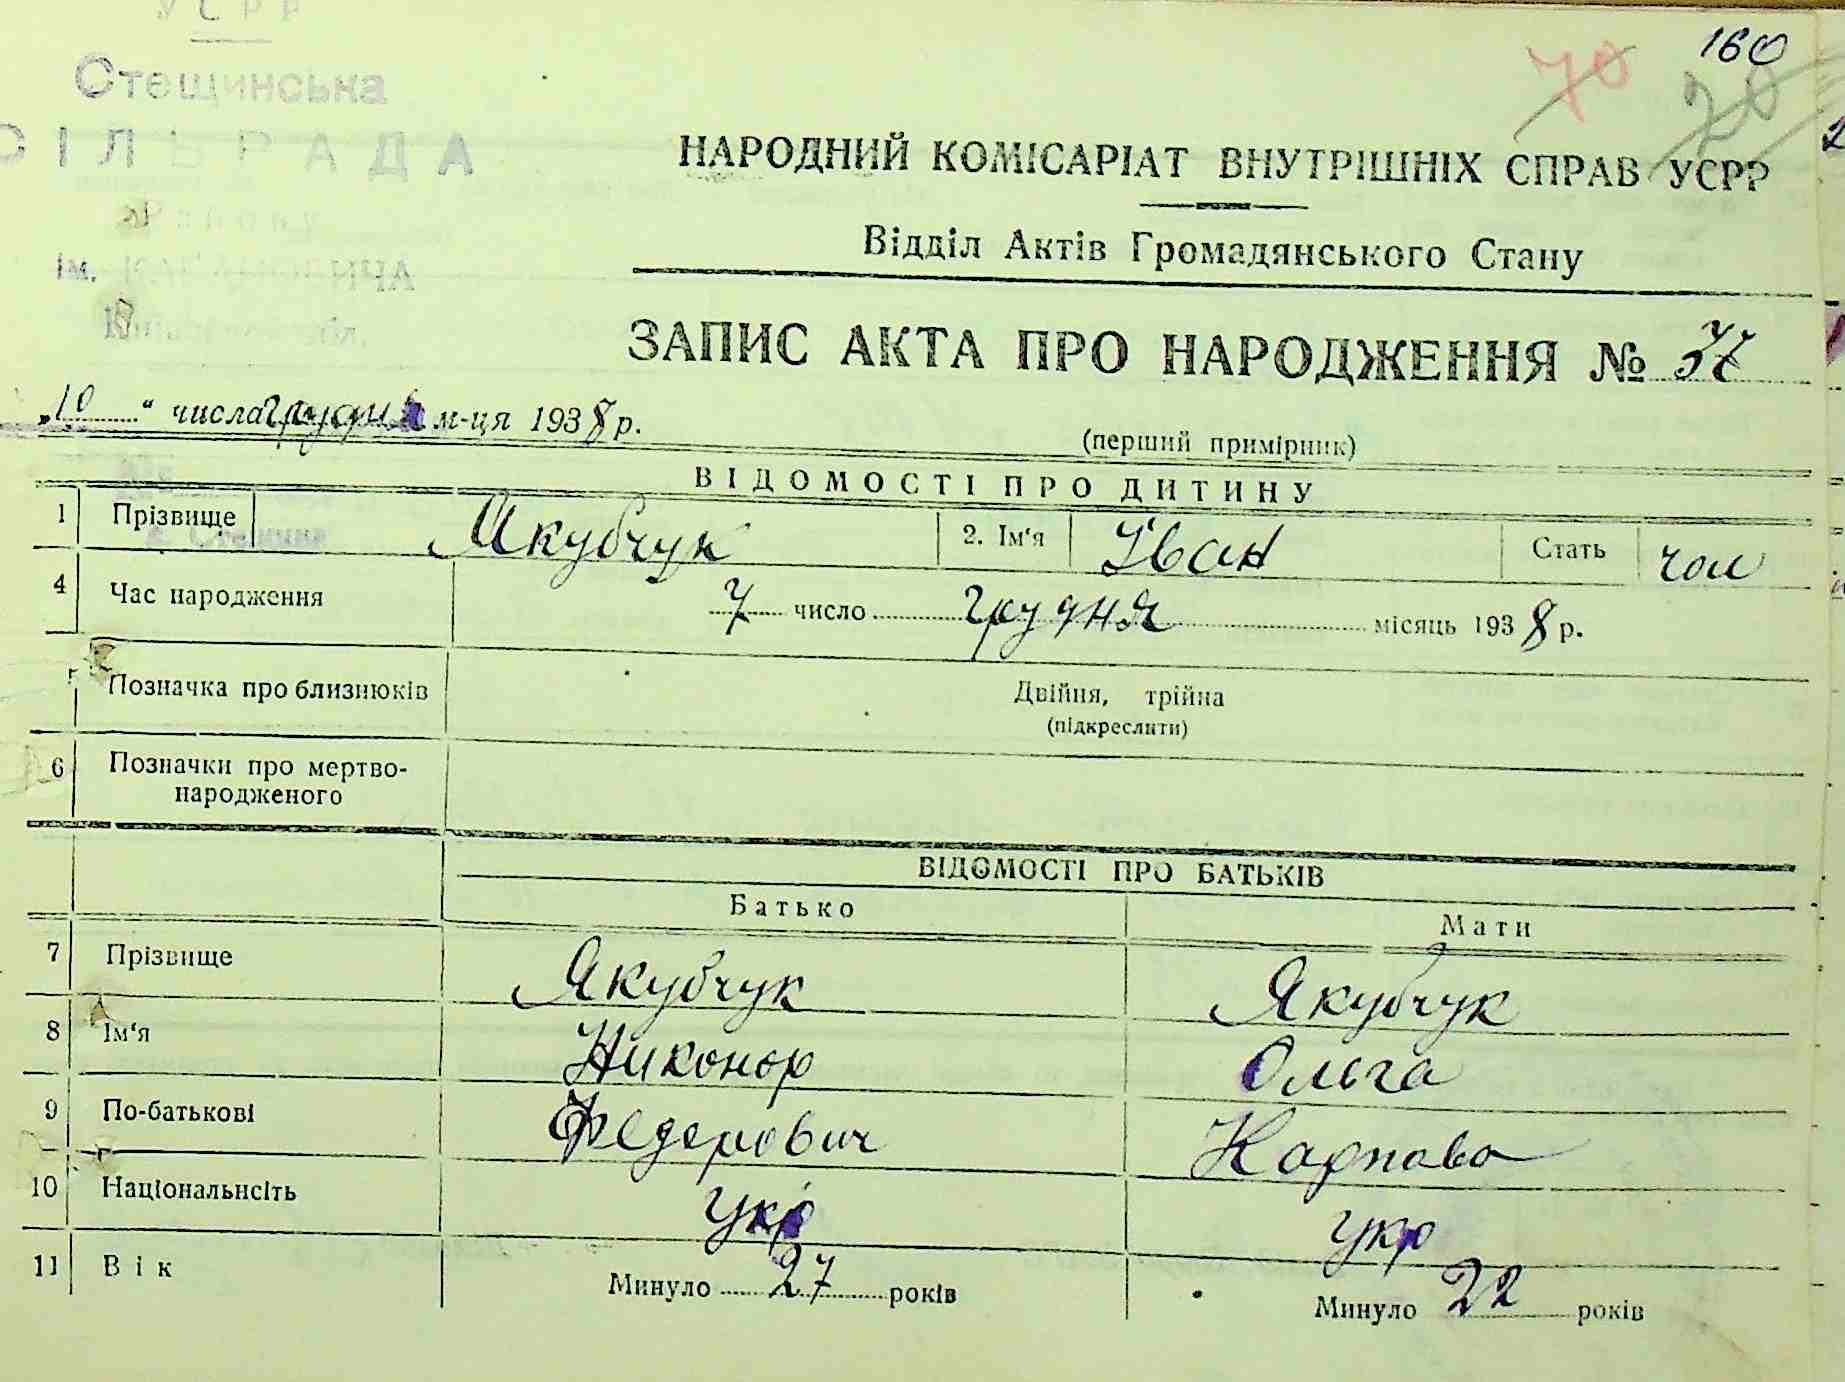 УСРР
160
70
70
Стещинська
СІЛЬРАДА
ім. КАГАНОВИЧА
НАРОДНИЙ КОМІСАРІАТ ВНУТРІШНІХ СПРАВ УСРР
Відділ Актів Громадянського Стану
ЗАПИС АКТА ПРО НАРОДЖЕННЯ №
„10“ числа грудня м-ця 1938 р.
(перший примірник)
ВІДОМОСТІ ПРО ДИТИНУ
с. Стещина
1 Прізвище Якубчук 2. Ім'я Іван Стать чол
4 Час народження 7 число грудня місяць 1938 р.
Позначка про близнюків Двійня, трійна
(підкреслити)
6 Позначки про мертво-
народженого
ВІДОМОСТІ ПРО БАТЬКІВ
Батько Мати
7 Прізвище Якубчук Якубчук
8 Ім'я Никонор Ольга
9 По-батькові Федерович Карпова
10 Національнсіть укр укр
11 Вік Минуло 27 років Минуло 22 років